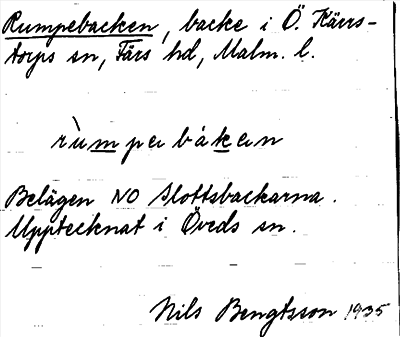 Rumpebacken, backe i Ö. Kärrs-
torps sn, Färs hd, Malm. l.
rùmpəbákən
Belägen NO Slottsbackarna.
Upptecknat i Öveds sn.
Nils Bengtsson 1935